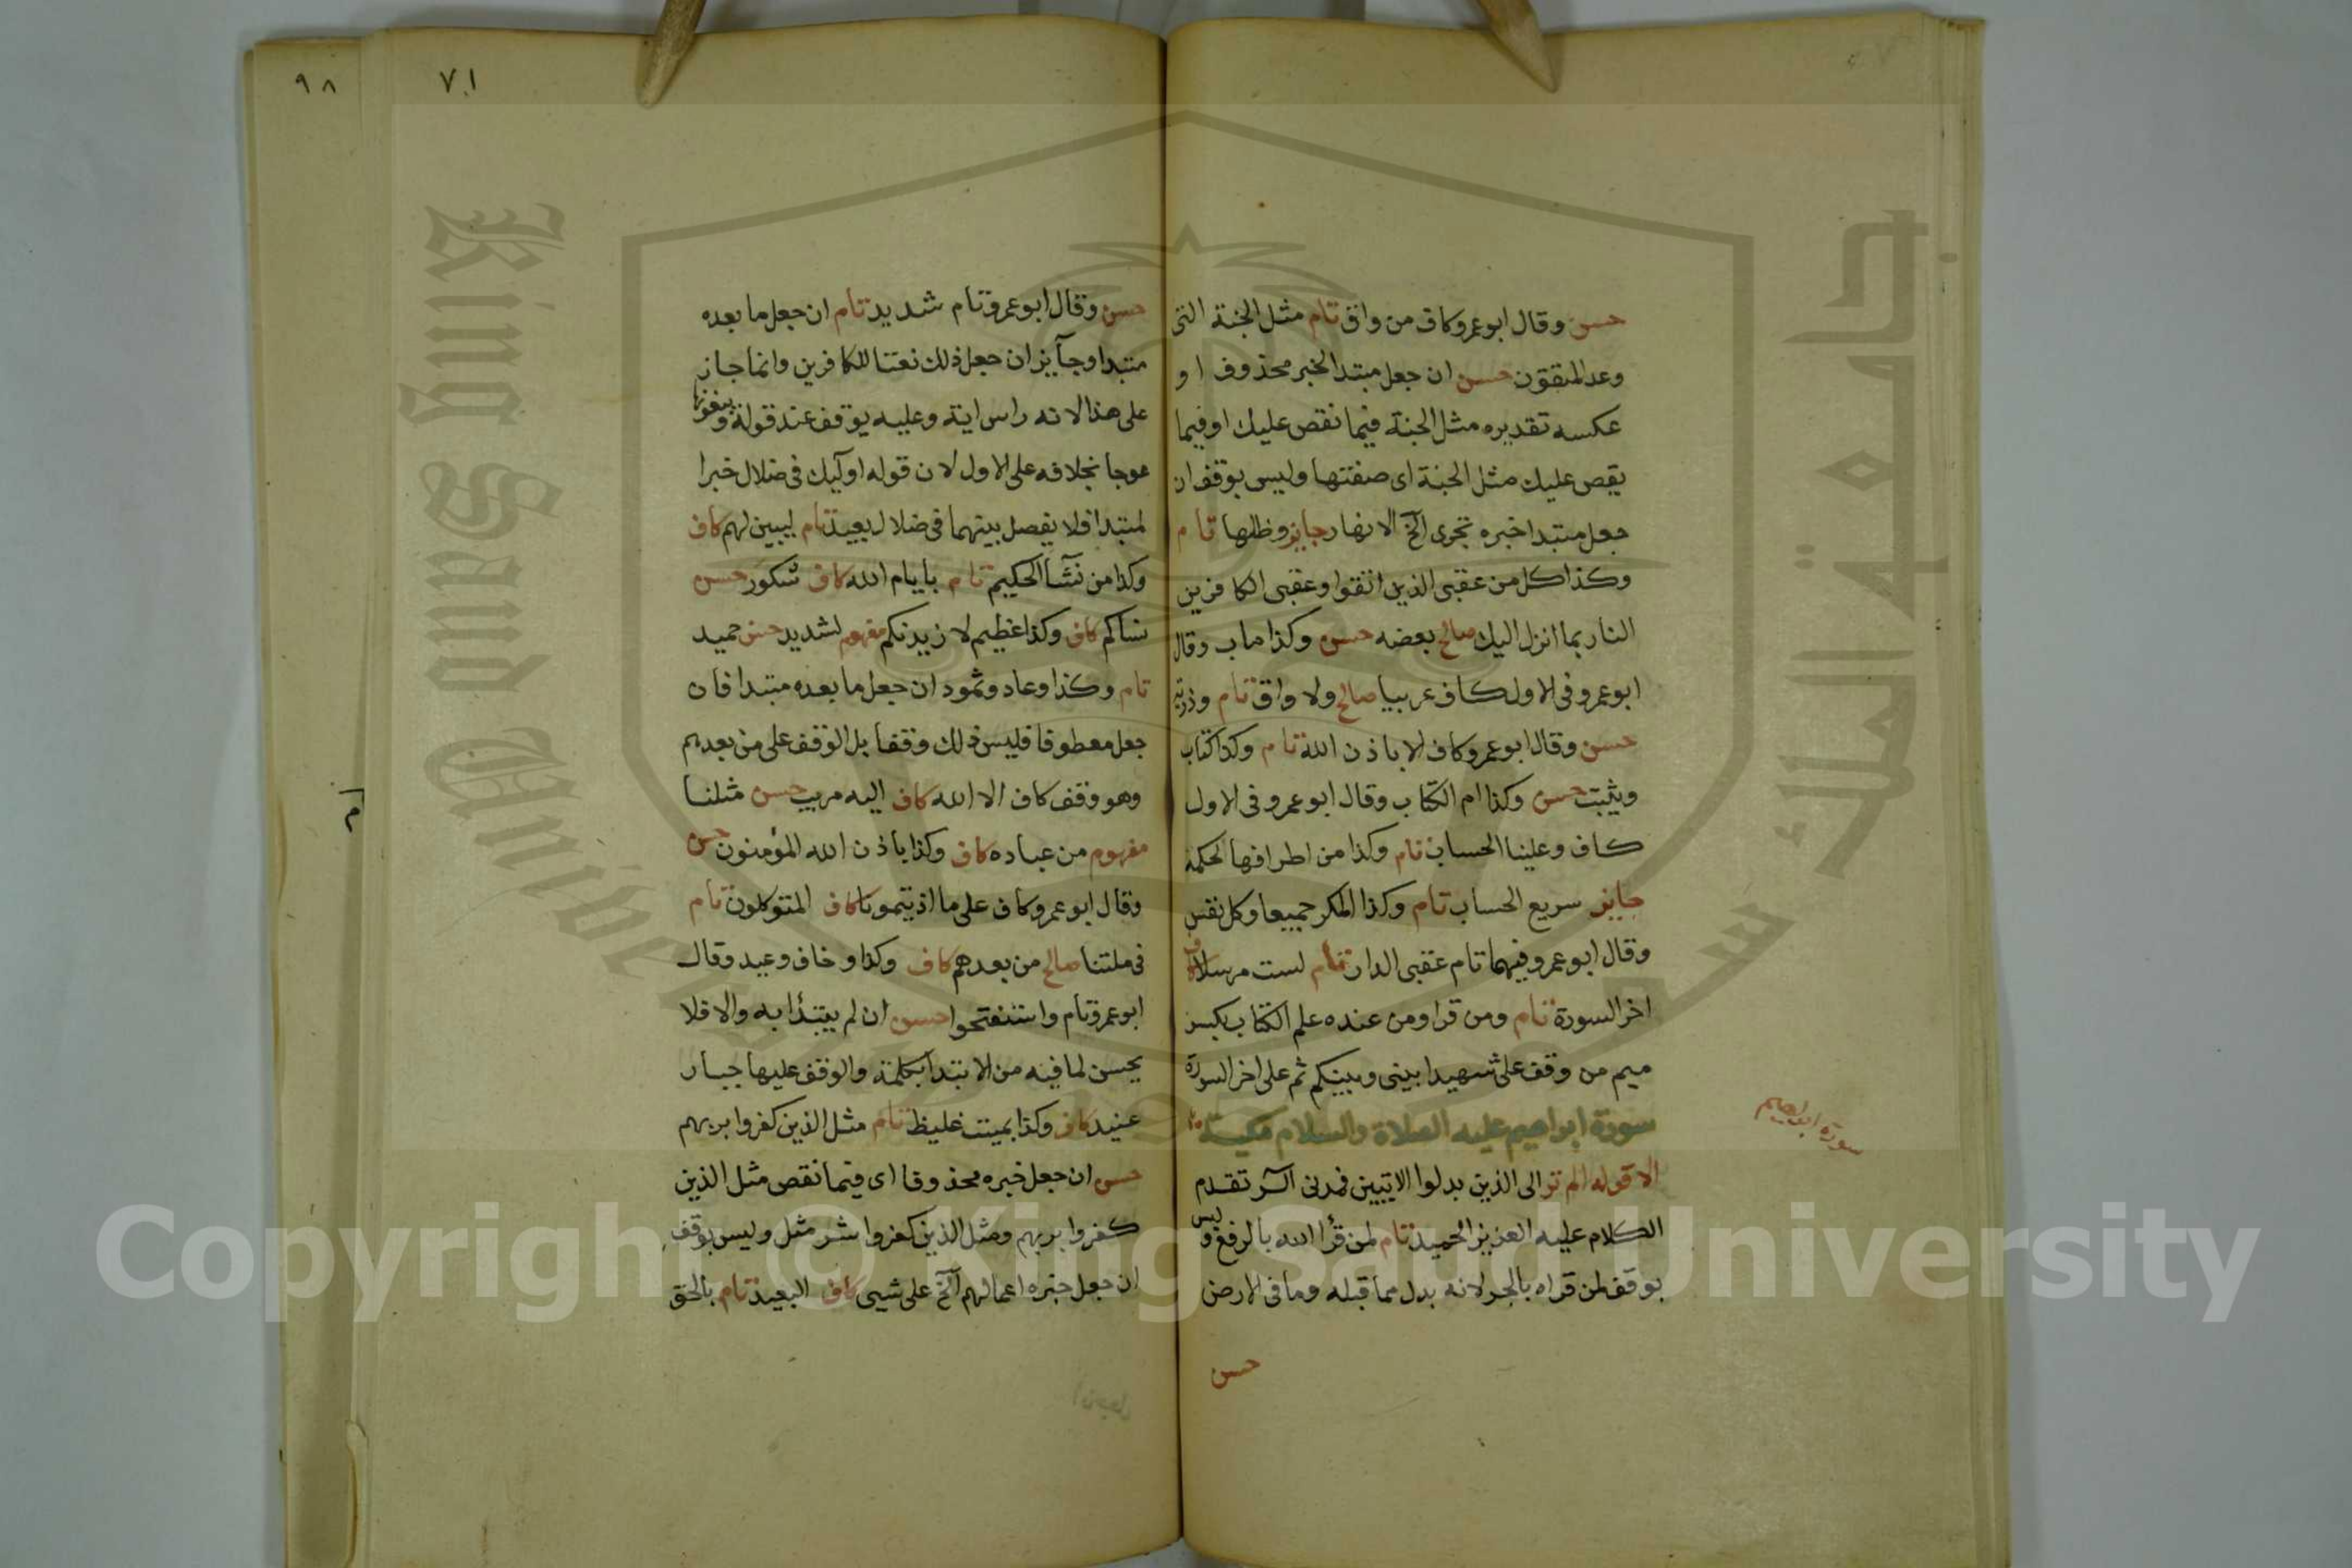 حسن وقال ابو عمرو كاف من واق تام مثل الجنة التى
وعد المتقون حسن ان جعل مبتدا لخبر محذوف او
عكسه تقديره مثل الجنة فيما نقص عليك او فيما
يقص عليك مثل الجنة اى صفتها وليس بوقف ان
جعل مبتدا خبره تجرى الخ الانهار جايز وظلها تام
وكذا كل من عقبى الذين اتقوا وعقبى الكافرين
النار بما انزل اليك صالح بعضه حسن وكذا ماب وقال
ابو عمرو فى الاول كاف عربيا صالح ولا واق تام وذرية
حسن وقال ابو عمرو كاف الا باذن الله تام وكذا كتاب
ويثبت حسن وكذا ام الكتاب وقال ابو عمرو فى الاول
كاف وعلينا الحساب تام وكذا من اطرافها لحكمه
جايز سريع الحساب تام وكذا المكر جميعا وكل نفس
وقال ابو عمرو فيهما تام عقبى الدار تام لست مرسلا كاف
اخر السورة تام ومن قرا ومن عنده علم الكتاب بكسر
ميم من وقف على شهيدا بينى وبينكم ثم على اخر السورة
سورة ابراهيم عليه الصلاة والسلام مكية
الا قوله الم تر الى الذين بدلوا الايتين فمدنى الر تقدم
الكلام عليه العزيز الحميد تام لمن قرا الله بالرفع وليس
بوقف لمن قراه بالجر لانه بدل مما قبله وما فى الارض
حسن
سورة ابراهيم
٩٨
٧١
حسن وقال ابو عمرو تام شديد تام ان جعل ما بعده
مبتدا وجآيز ان جعل ذلك نعتا للكافرين وانما جاز
على هذا لانه راس اية وعليه يوقف عند قوله ويبغونها
عوجا بخلافه على الاول لان قوله اوليك فى ضلال خبرا
لمبتدا فلا يفصل بينهما فى ضلال بعيد تام ليبين لهم كاف
وكذا من نشآ الحكيم تام بايام الله كاف شكور حسن
نساكم كاف وكذا عظيم لازيدنكم مفهوم لشديد حسن حميد
تام وكذا وعاد وثمود ان جعل ما بعده مبتدا فان
جعل معطوفا فليس ذلك وقفا بل الوقف على من بعدهم
وهو وقف كاف الا الله كاف اليه مريب حسن مثلنا
مفهوم من عباده كاف وكذا باذن الله المؤمنون حسن
وقال ابو عمرو كاف على ما اذيتمونا كاف المتوكلون تام
فى ملتنا صالح من بعدهم كاف وكذا وخاف وعيد وقال
ابو عمرو تام واستفتحوا حسن ان لم يبتدأ به والا فلا
يحسن لما فيه من الابتدا بكلمة والوقف عليها جبار
عنيد كاف وكذا بميت غليظ تام مثل الذين كفروا بربهم
حسن ان جعل خبره محذوفا اى فيما نقص مثل الذين
كفروا بربهم ومثل الذين كفروا شر مثل وليس بوقف
ان جعل خبره اعمالهم الخ على شيى كاف البعيد تام بالحق
King Saud University
جامعة الملك سعود
Copyright © King Saud University